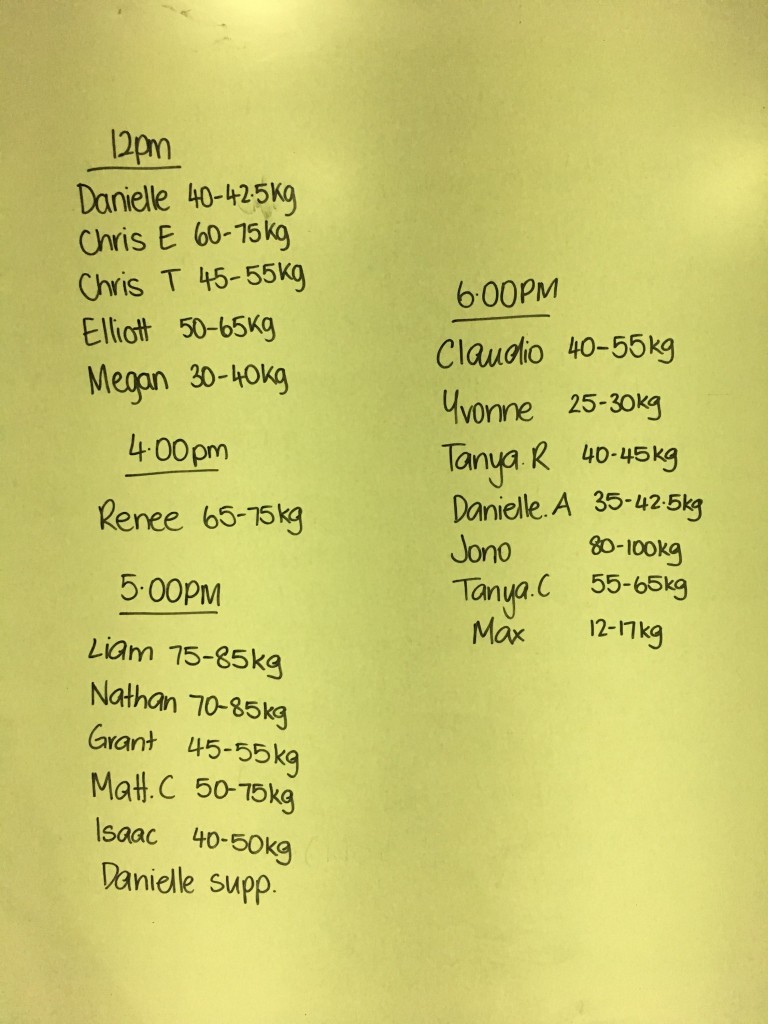 12pm
Danielle 40-42.5kg
Chris E 60-75kg
Chris T 45-55kg
Elliott 50-65kg
Megan 30-40kg
4.00pm
Renee 65-75kg
5.00PM
Liam 75-85kg
Nathan 70-85kg
Grant 45-55kg
Matt.C 50-75kg
Isaac 40-50kg
Danielle supp.
6.00PM
Claudio 40-55kg
Yvonne 25-30kg
Tanya.R 40-45kg
Danielle.A 35-42.5kg
Jono 80-100kg
Tanya.C 55-65kg
Max 12-17kg